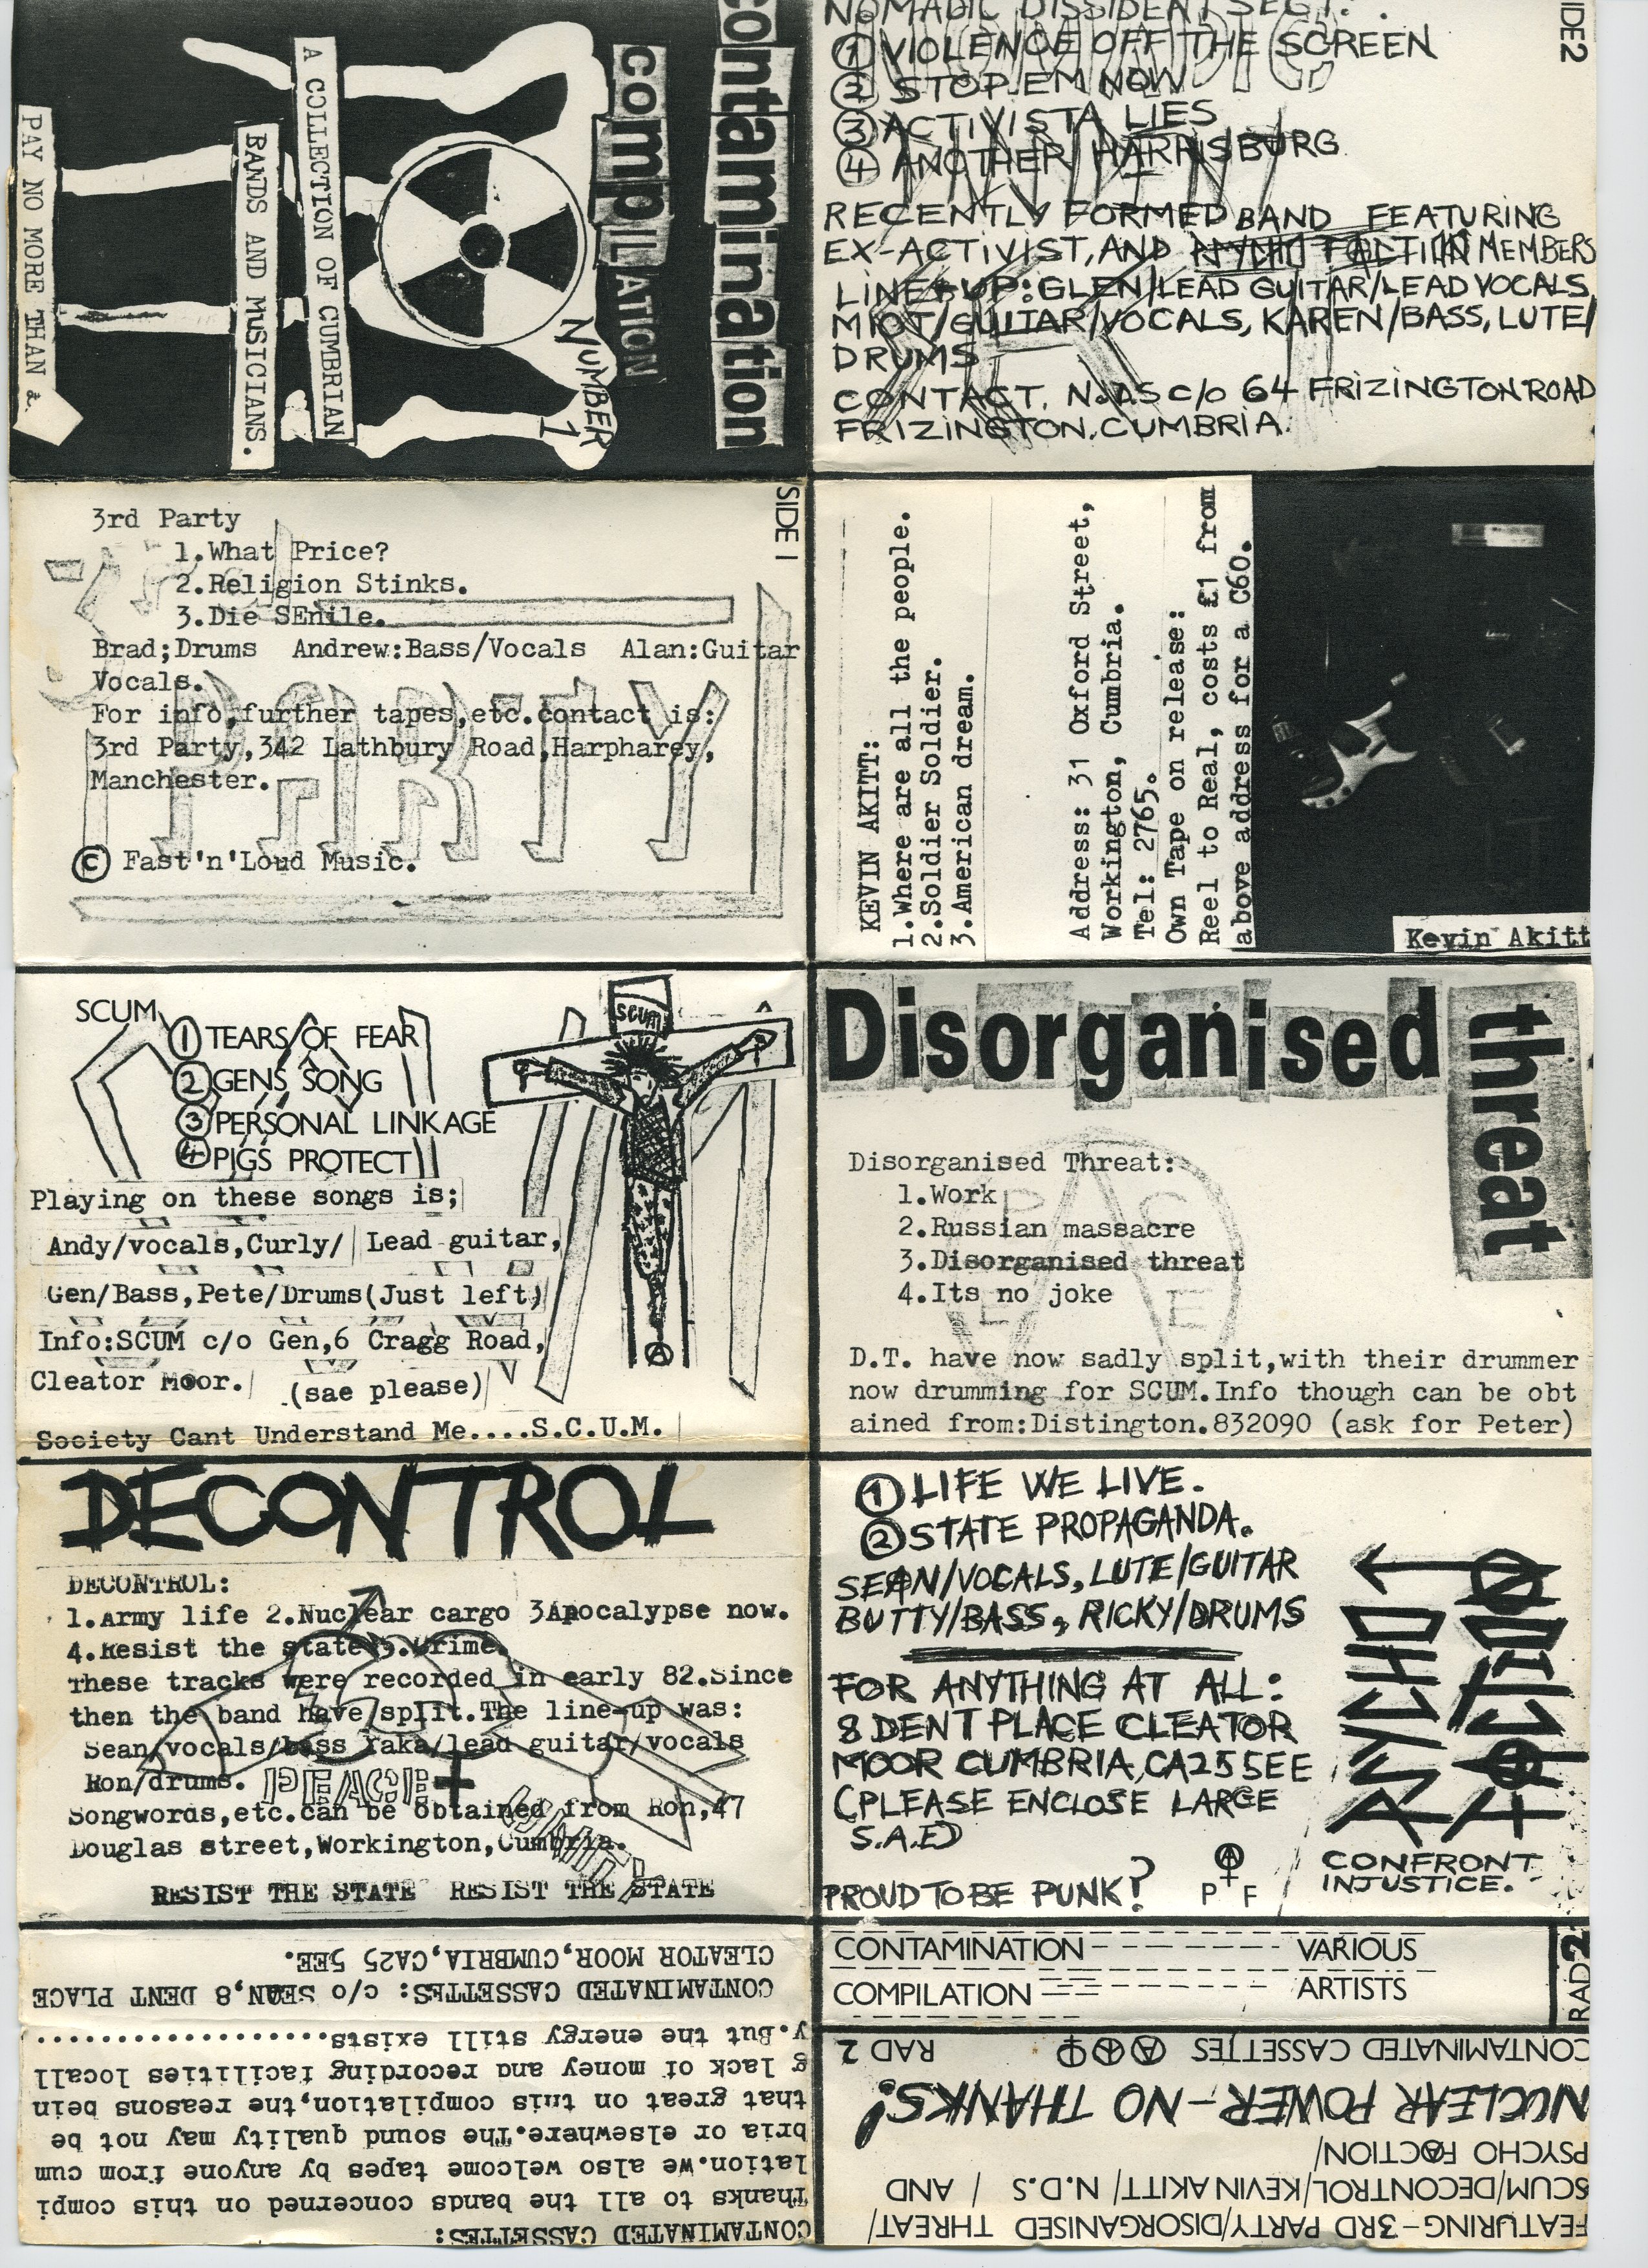 contamination
compILATION
NUMBER 1
A COLLECTION OF CUMBRIAN
BANDS AND MUSICIANS.
PAY NO MORE THAN
SIDE 1
3rd Party
1.What Price?
2.Religion Stinks.
3.Die SEnile.
Brad;Drums Andrew:Bass/Vocals Alan:Guitar
Vocals.
For info,further tapes,etc.contact is:
3rd Party,342 Lathbury Road,Harpharey,
Manchester.
© Fast'n'Loud Music.
PARTY
SCUM
1 TEARS OF FEAR
2 GENS SONG
3 PERSONAL LINKAGE
4 PIGS PROTECT
SCUM
Playing on these songs is;
Andy/vocals,Curly/ Lead guitar,
Gen/Bass,Pete/Drums(Just left)
Info:SCUM c/o Gen,6 Cragg Road,
Cleator Moor.
(sae please)
Society Cant Understand Me....S.C.U.M.
DECONTROL
DECONTROL:
1.Army life 2.Nuclear cargo 3Apocalypse now.
4.Resist the state 5.Crime.
These tracks were recorded in early 82.Since
then the band have split.The line-up was:
Sean/vocals/bass Yaka/lead guitar/vocals
Ron/drums.
PEACE +
UNITY
Songwords,etc.can be obtained from Ron,47
Douglas street,Workington,Cumbria.
RESIST THE STATE RESIST THE STATE
CONTAMINATED CASSETTES:
Thanks to all the bands concerned on this compi
lation.We also welcome tapes by anyone from cum
bria or elsewhere.The sound quality may not be
that great on this compilation,the reasons bein
g lack of money and recording facilities locall
y.But the energy still exists..................
CONTAMINATED CASSETTES: c/o SEAN,8 DENT PLACE
CLEATOR MOOR,CUMBRIA,CA25 5EE.
SIDE2
NOMADIC DISSIDENT SECT:.
1 VIOLENCE OFF THE SCREEN
2 STOP EM NOW
3 ACTIVISTA LIES
4 ANOTHER HARRISBURG
RECENTLY FORMED BAND FEATURING
EX-ACTIVIST,AND PSYCHO FACTION MEMBERS
LINE-UP:GLEN/LEAD GUITAR/LEAD VOCALS
MIOT/GUITAR/VOCALS, KAREN/BASS, LUTE/
DRUMS
CONTACT. N.D.S c/o 64 FRIZINGTON ROAD
FRIZINGTON.CUMBRIA.
KEVIN AKITT:
1.Where are all the people.
2.Soldier Soldier.
3.American dream.
Address: 31 Oxford Street,
Workington, Cumbria.
Tel: 2765.
Own Tape on release:
Reel to Real, costs £1 from
above address for a C60.
Kevin Akitt
Disorganised
threat
Disorganised Threat:
1.Work
2.Russian massacre
3.Disorganised threat
4.Its no joke
D.T. have now sadly split,with their drummer
now drumming for SCUM.Info though can be obt
ained from:Distington.832090 (ask for Peter)
1 LIFE WE LIVE.
2 STATE PROPAGANDA.
SEAN/VOCALS, LUTE/GUITAR
BUTTY/BASS, RICKY/DRUMS
FOR ANYTHING AT ALL:
8 DENT PLACE CLEATOR
MOOR CUMBRIA,CA255EE
(PLEASE ENCLOSE LARGE
S.A.E)
PROUD TO BE PUNK?
P F
PSYCHO
FACTION
CONFRONT
INJUSTICE.
CONTAMINATION------- VARIOUS
COMPILATION ------- ARTISTS
RAD2
FEATURING-3RD PARTY/DISORGANISED THREAT/
SCUM/DECONTROL/KEVIN AKITT/ N.D.S / AND
PSYCHO FACTION/
NUCLEAR POWER-NO THANKS!
CONTAMINATED CASSETTES RAD 2